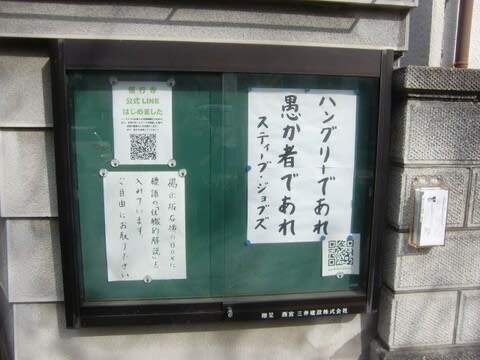 ハングリーであれ
愚か者であれ
スティーブ・ジョブズ
公式LINE
はじめました
掲示板右横のBOXに
標語の「住職的解説」を
入れています。
ご自由にお取り下さい
贈呈 西宮 三井建設株式会社